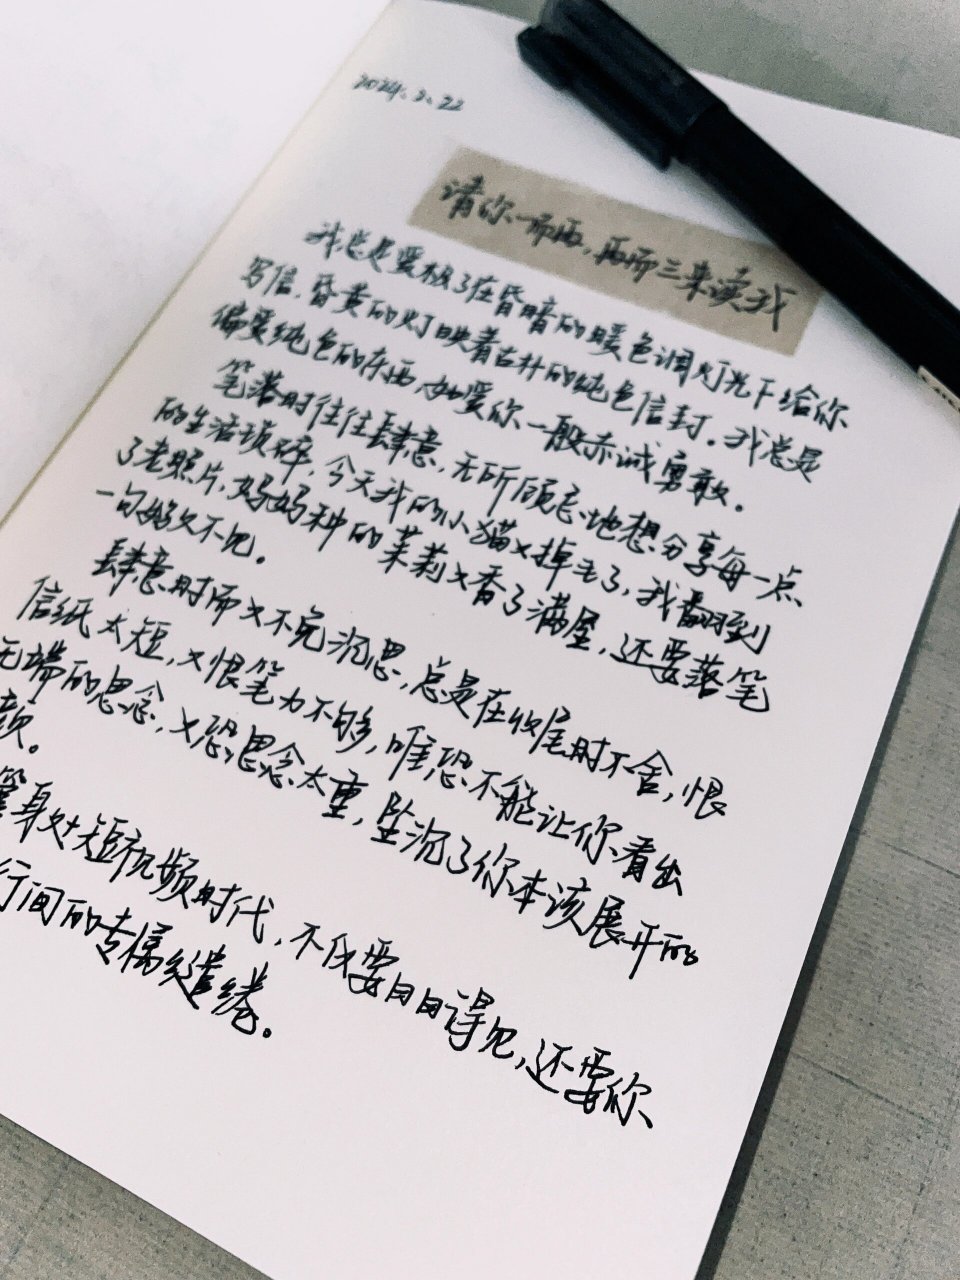 2024.2.22
请你一而再,再而三来读我
我总是爱极了在昏暗的暖色调灯光下给你
写信,昏黄的灯映着古朴的纯色信封。我总是
偏爱纯色的东西,如爱你一般赤诚勇敢。
笔落时往往肆意,无所顾忌地想分享每一点
的生活琐碎,今天我的小猫又掉毛了,我翻到
了老照片,妈妈种的茉莉又香了满屋,还要落笔
一句好久不见。
肆意时而又不免沉思,总是在收尾时不舍,恨
信纸太短,又恨笔力不够,唯恐不能让你看出
无端的思念,又恐思念太重,坠沉了你本该展开的
颜。
身处短视频时代,不仅要日日得见,还要你
行间的专属缱绻。